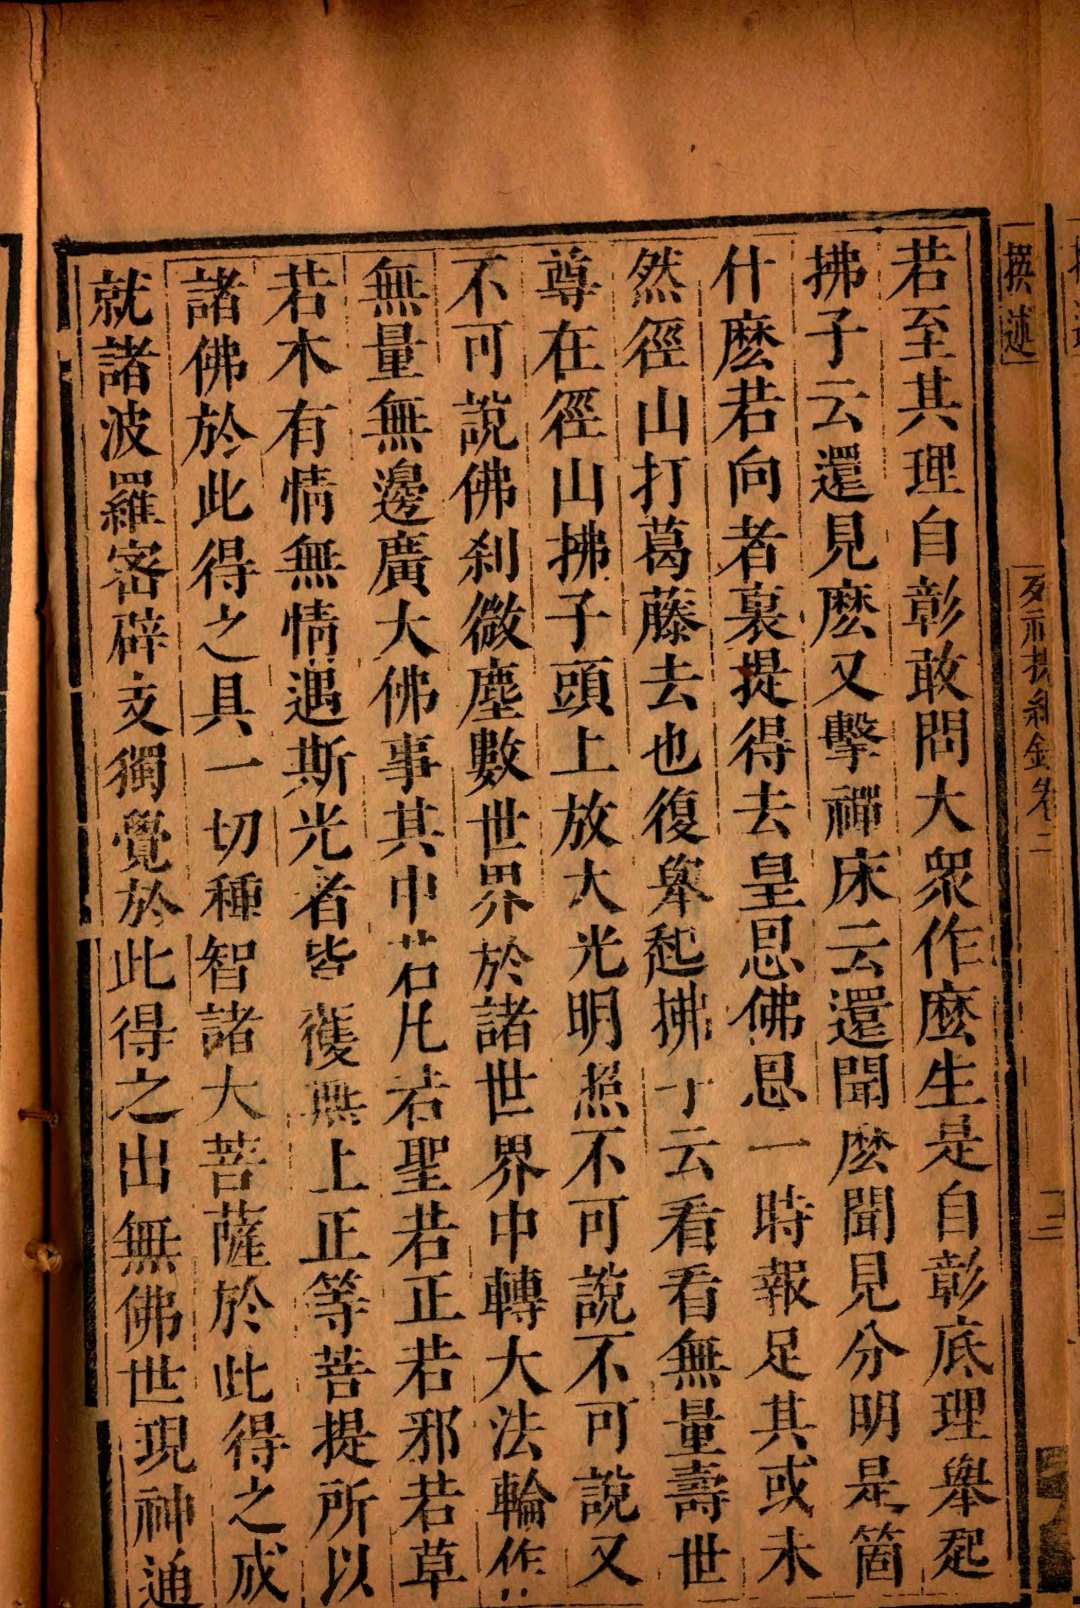 撰述
列祖提綱錄卷二
若至其理自彰敢問大眾作麽生是自彰底理舉起
拂子云還見麽又擊禪床云還聞麽聞見分明是箇
什麽若向者裏提得去皇恩佛恩一時報足其或未
然徑山打葛藤去也復舉起拂子云看看無量壽世
尊在徑山拂子頭上放大光明照不可說不可說又
不可說佛剎微塵數世界於諸世界中轉大法輪作
無量無邊廣大佛事其中若凡若聖若正若邪若草
若木有情無情遇斯光者皆獲無上正等菩提所以
諸佛於此得之具一切種智諸大菩薩於此得之成
就諸波羅密辟支獨覺於此得之出無佛世現神通